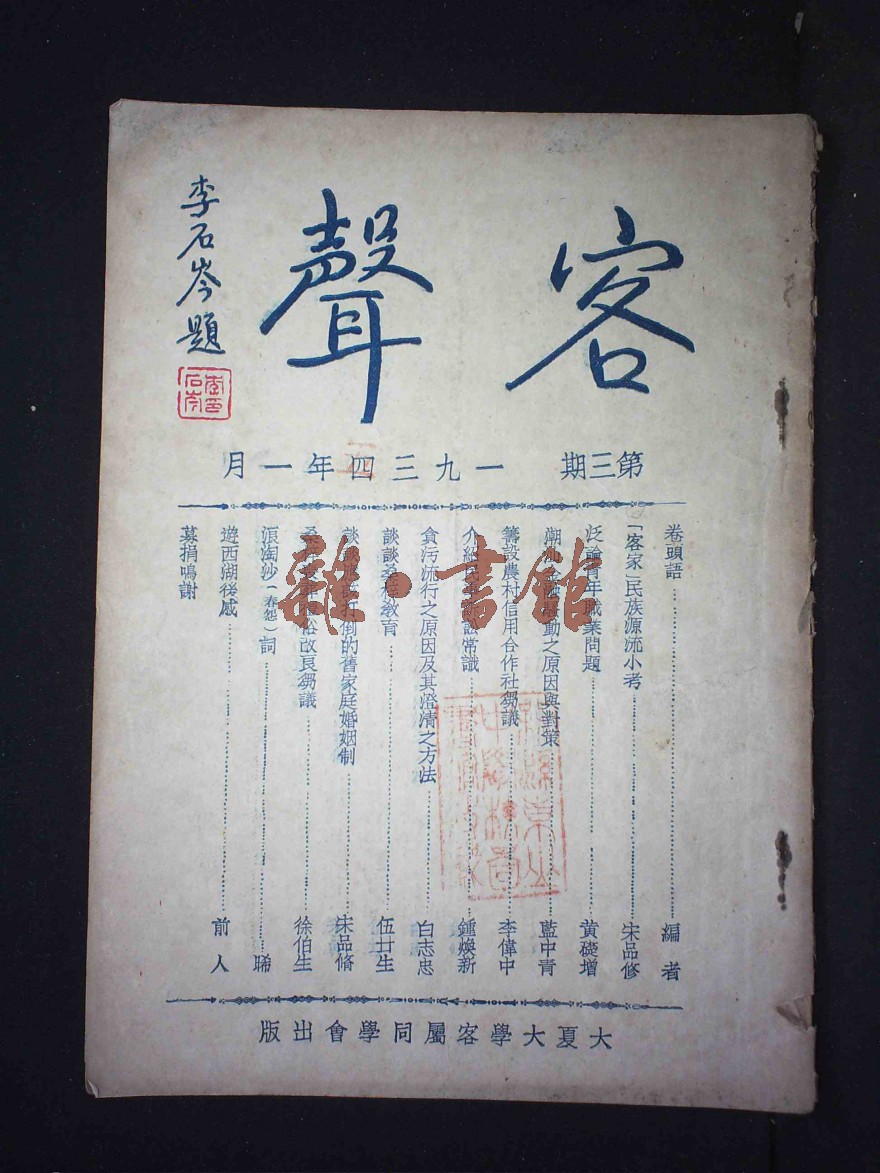 客聲
李石岑題
第三期 一九三四年一月
卷頭語 編者
「客家」民族源流小考 宋品修
泛論青年職業問題 黃礎增
潮汕金融 動之原因與對策 藍中青
籌設農村信用合作社芻議 李偉中
介紹 常識 鍾煥新
貪污流行之原因及其澄清之方法 白志忠
談談 教育 伍廿生
談談 打倒的舊家庭婚姻制 宋品脩
俗改良芻議 徐伯生
浪淘沙(春怨)詞 睎
遊西湖後感 前人
募捐鳴謝
大夏大學客屬同學會出版
雜·書館